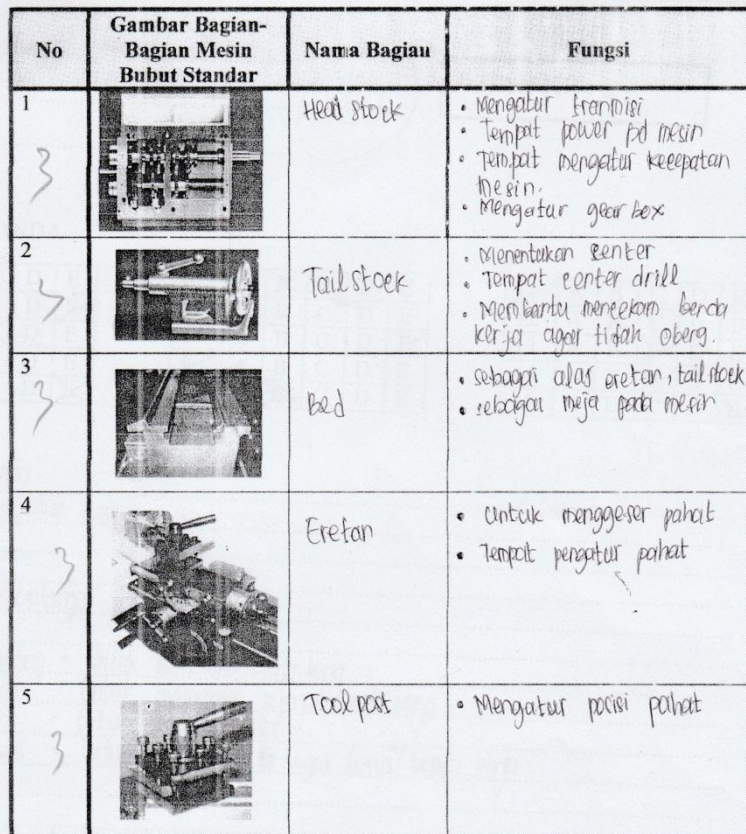 No
Gambar Bagian-
Bagian Mesin
Bubut Standar
Nama Bagiau
Fungsi
1
3
Head stock
• Mengatur tranmisi
• Tempat power pd mesin
• Tempat mengatur kecepatan
mesin.
• Mengatur gear box
2
3
Tail stock
• Menentukan center
• Tempat center drill
• Membantu mencekam benda
kerja agar tidak oberg.
3
3
Bed
• sebagai alas eretan, tail stock
• sebagai meja pada mesin
4
3
Eretan
• untuk menggeser pahat
• Tempat pengatur pahat
5
3
Tool post
• Mengatur posisi pahat